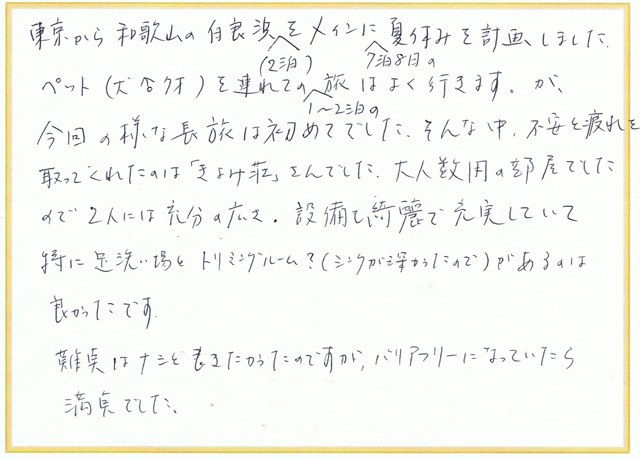 東京から和歌山の白良浜をメインに夏休みを計画しました。
(2泊) 7泊8日の
ペット(犬 2才)を連れての旅はよく行きます。が、
1〜2泊の
今回の様な長旅は初めてでした。そんな中、不安と疲れを
取ってくれたのは「きよみ荘」さんでした。大人数用の部屋でした
ので2人には充分の広さ。設備も綺麗で充実していて
特に足洗い場とトリミングルーム?(シンクが深かったので)があるのは
良かったです。
難点はナシと書きたかったのですが、バリアフリーになっていたら
満点でした。